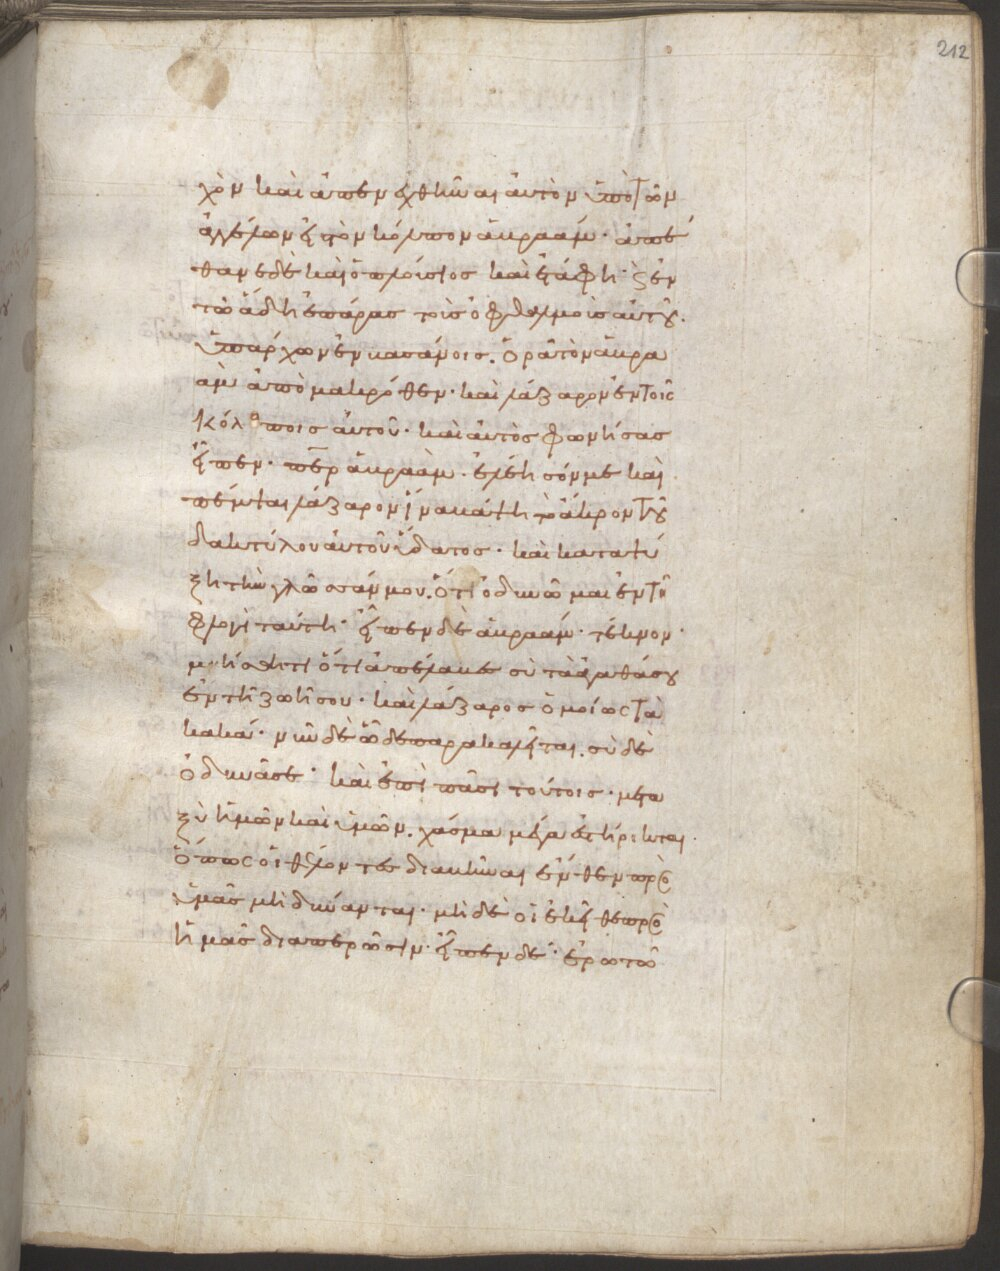 212
χὸν καὶ ἀπενεχθῆναι αὐτὸν ὑπὸ τῶν
ἀγγέλων εἰς τὸν κόλπον ἀβραάμ· ἀπέ
θανε δὲ καὶ ὁ πλούσιος καὶ ἐτάφη· ϗ ἐν
τῶ ἅδη ἐπάρας τοὺς ὀφθαλμοὺς αὐτοῦ.
ὑπάρχων ἐν βασάνοις. ὁρᾶ τὸν ἀβρα
ὰμ ἀπὸ μακρόθεν· καὶ λάζαρον ἐν τοῖς
κόλποις αὐτοῦ· καὶ αὐτὸς φωνήσας
εἶπεν· περ ἀβραὰμ· ἐλέησόν με καὶ
πέμψαι λάζαρον ἵνα βάψη τὸ ἄκρον τοῦ
δακτύλου αὐτοῦ ὕδατος· καὶ καταψύ
ξη τὴν γλῶσσάν μου. ὅτι ὀδυνῶμαι ἐν τῆ
φλογὶ ταύτη· εἶπεν δὲ ἀβραάμ· τέκνον·
μνήσθητι ὅτι ἀπέλαβες σὺ τὰ ἀγαθά σου
ἐν τῆ ζωῆ σου· καὶ λάζαρος ὁμοίως τὰ
κακά· νῦν δὲ ὧδε παρακαλεῖται. σὺ δὲ
ὀδυνᾶσαι· καὶ ἐπὶ πᾶσι τούτοις· μετα
ξὺ ἡμῶν καὶ ὑμῶν. χάσμα μέγα ἐστήρικται.
ὅπως οἱ θέλοντες διαβῆναι ἔνθεν πρὸς
ὑμᾶς μὴ δύνανται· μὴ δὲ οἱ ἐκεῖθεν πρὸς
ἡμᾶς διαπερῶσιν· εἶπεν δέ· ἐρωτῶ